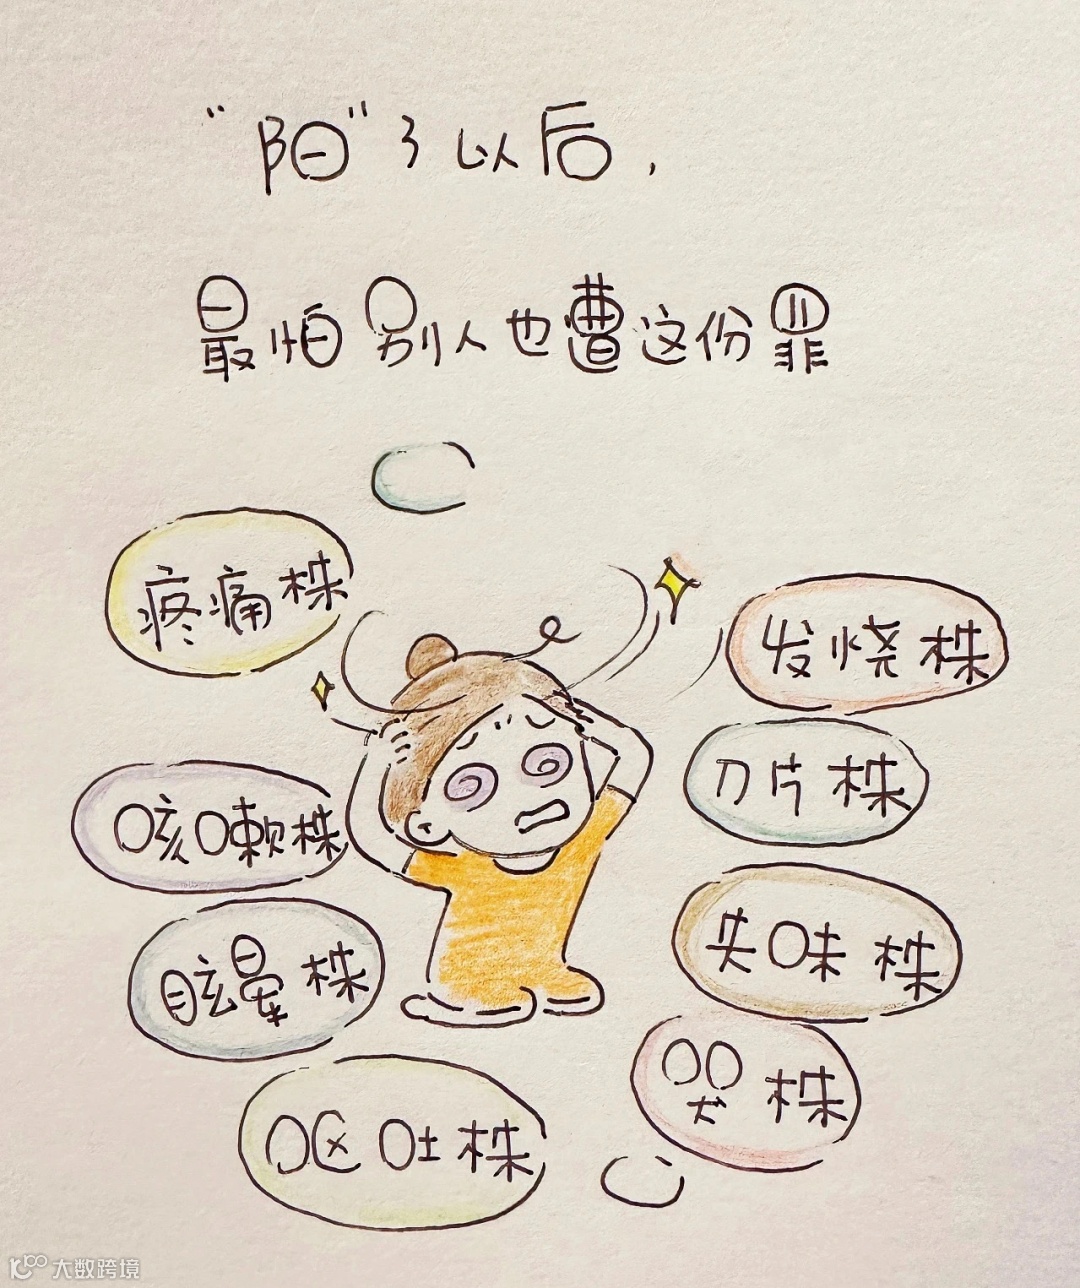 “阳”了以后，
最怕别人也遭这份罪
疼痛株
发烧株
刀片株
咳嗽株
失味株
眩晕株
哭株
呕吐株
大数跨境